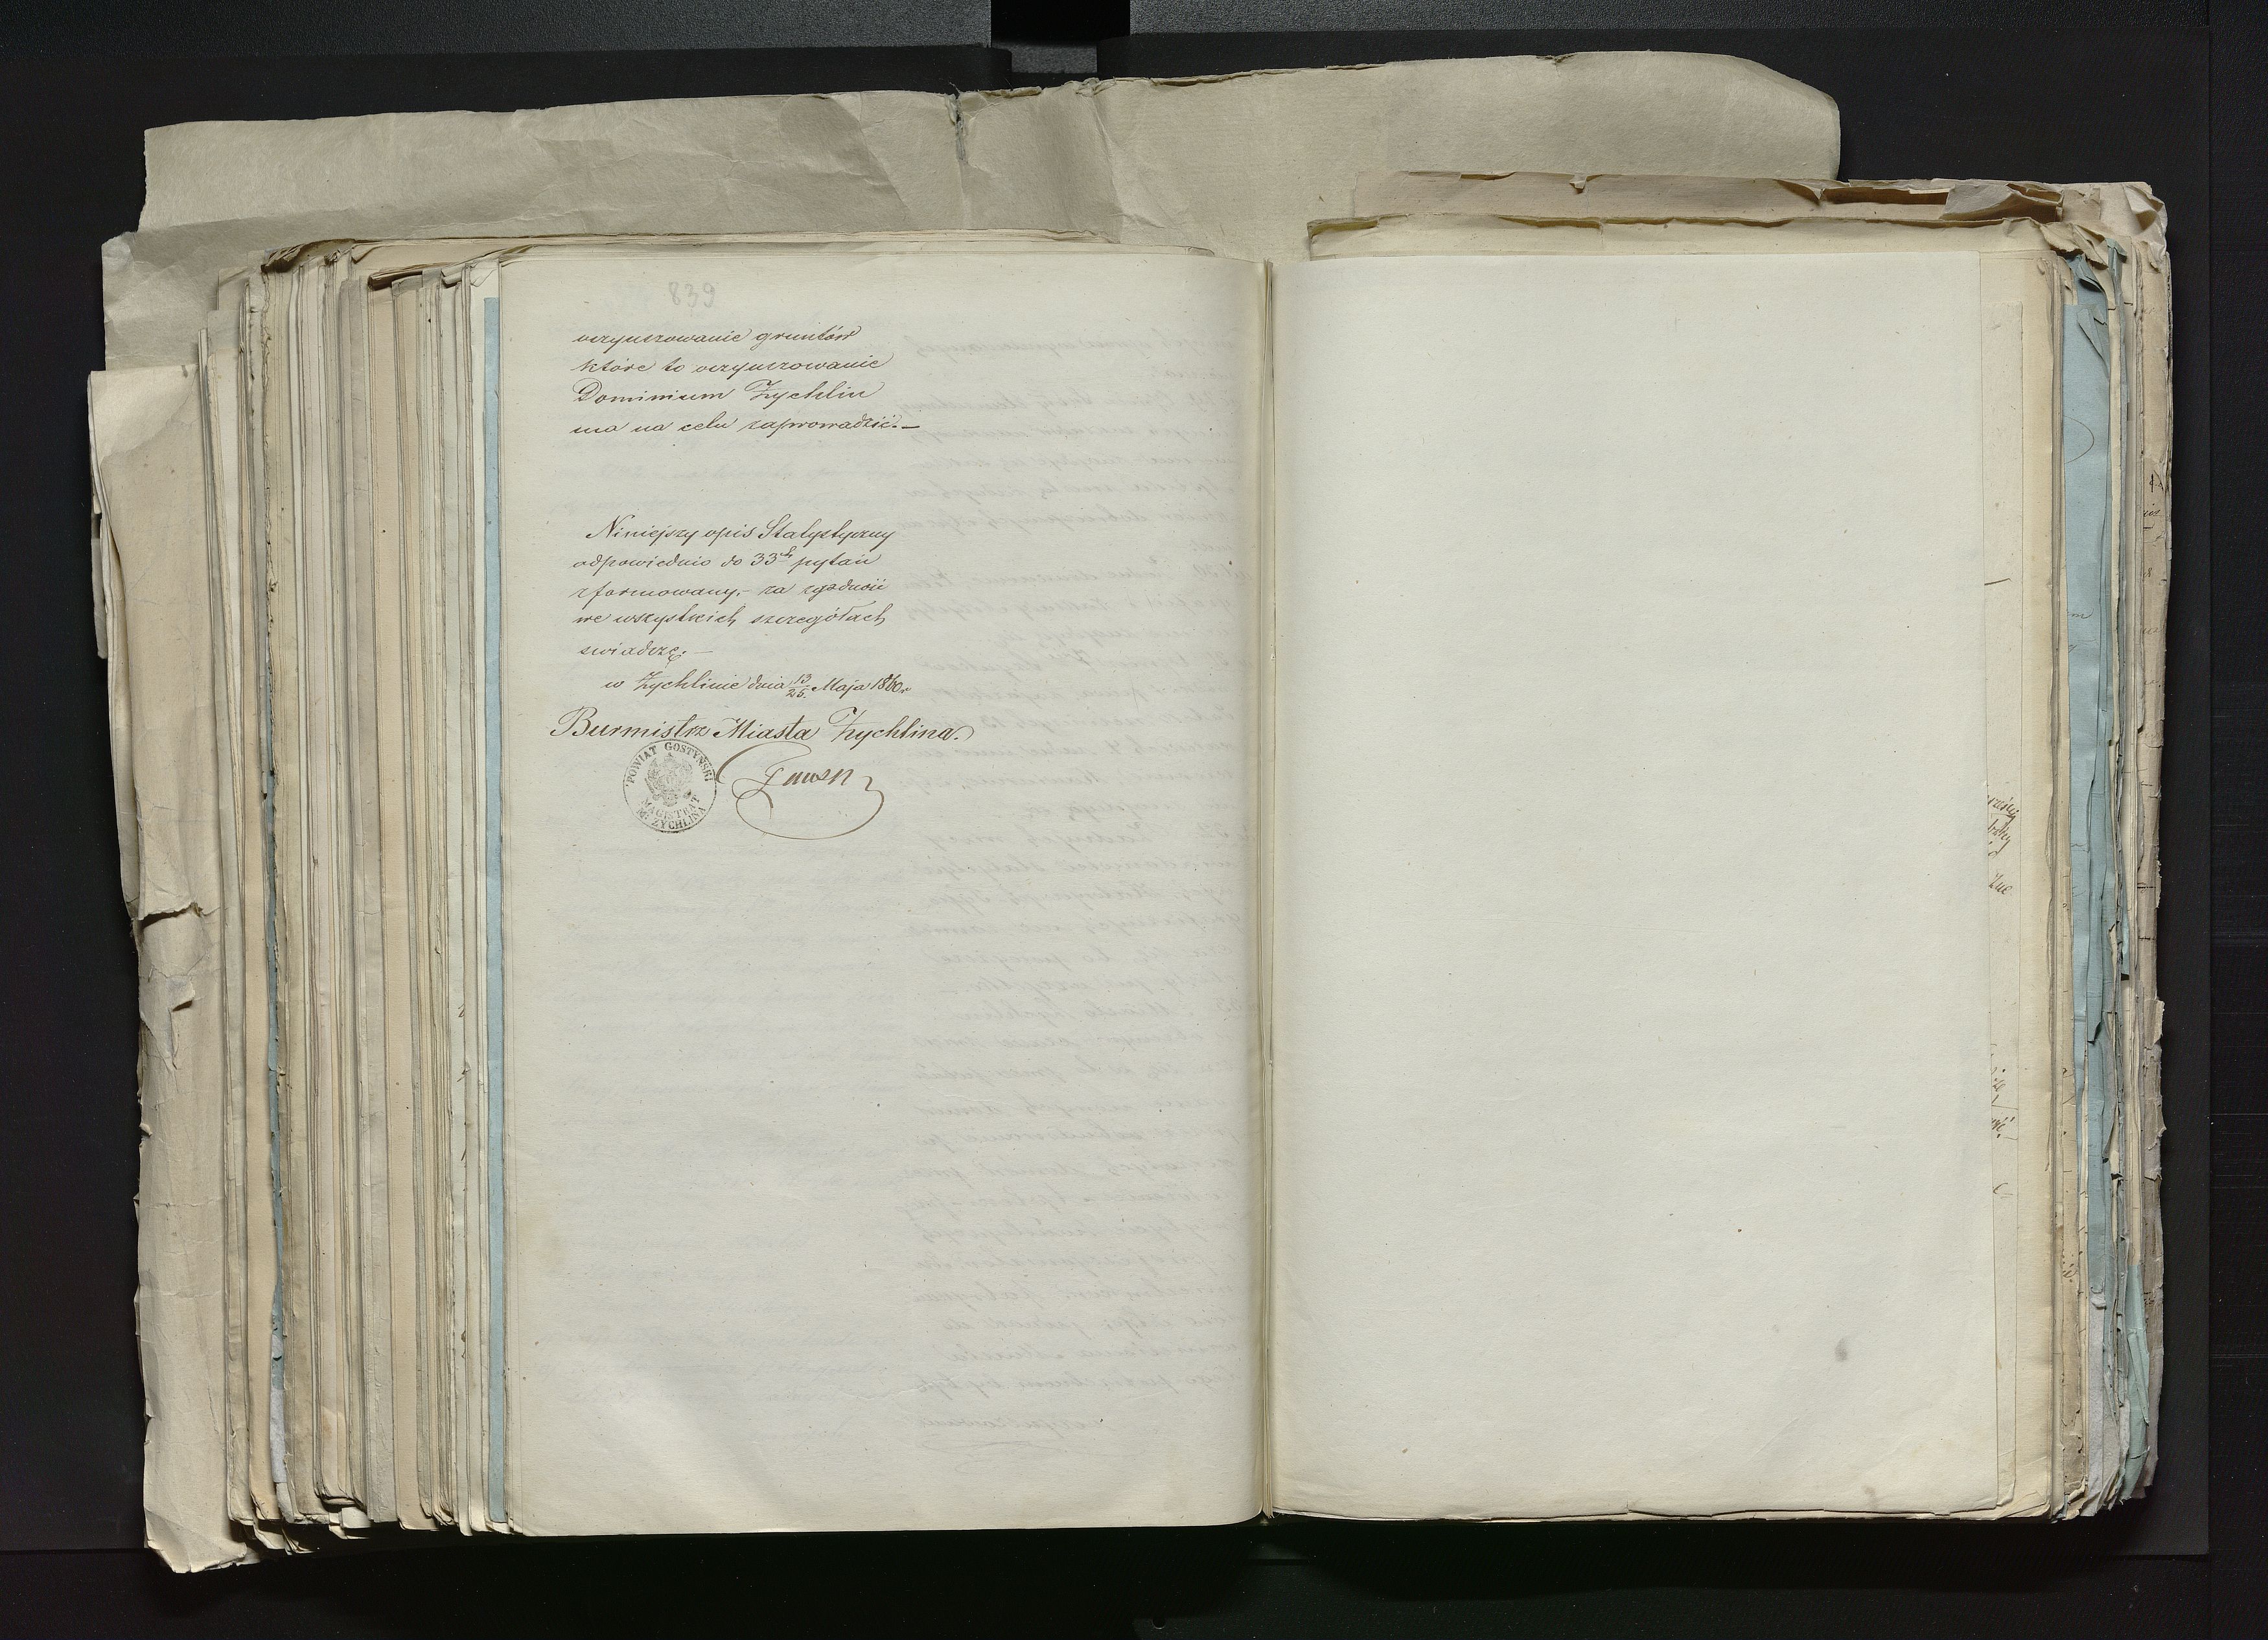 839
oczynszowanie gruntów
które to oczynszowanie
Dominium Zychlin
ma na celu zaprowadzić. —
Niniejszy opis Statystyczny
odpowiednio do 33ch pytań
sformowany, – za zgodność
we wszystkich szczegółach
świadczę. —
w Zychlinie dnia 13/25 Maja 1860 r
Burmistrz Miasta Zychlina.
POWIAT GOSTYŃSKI
MAGISTRAT
Mta ZYCHLINA